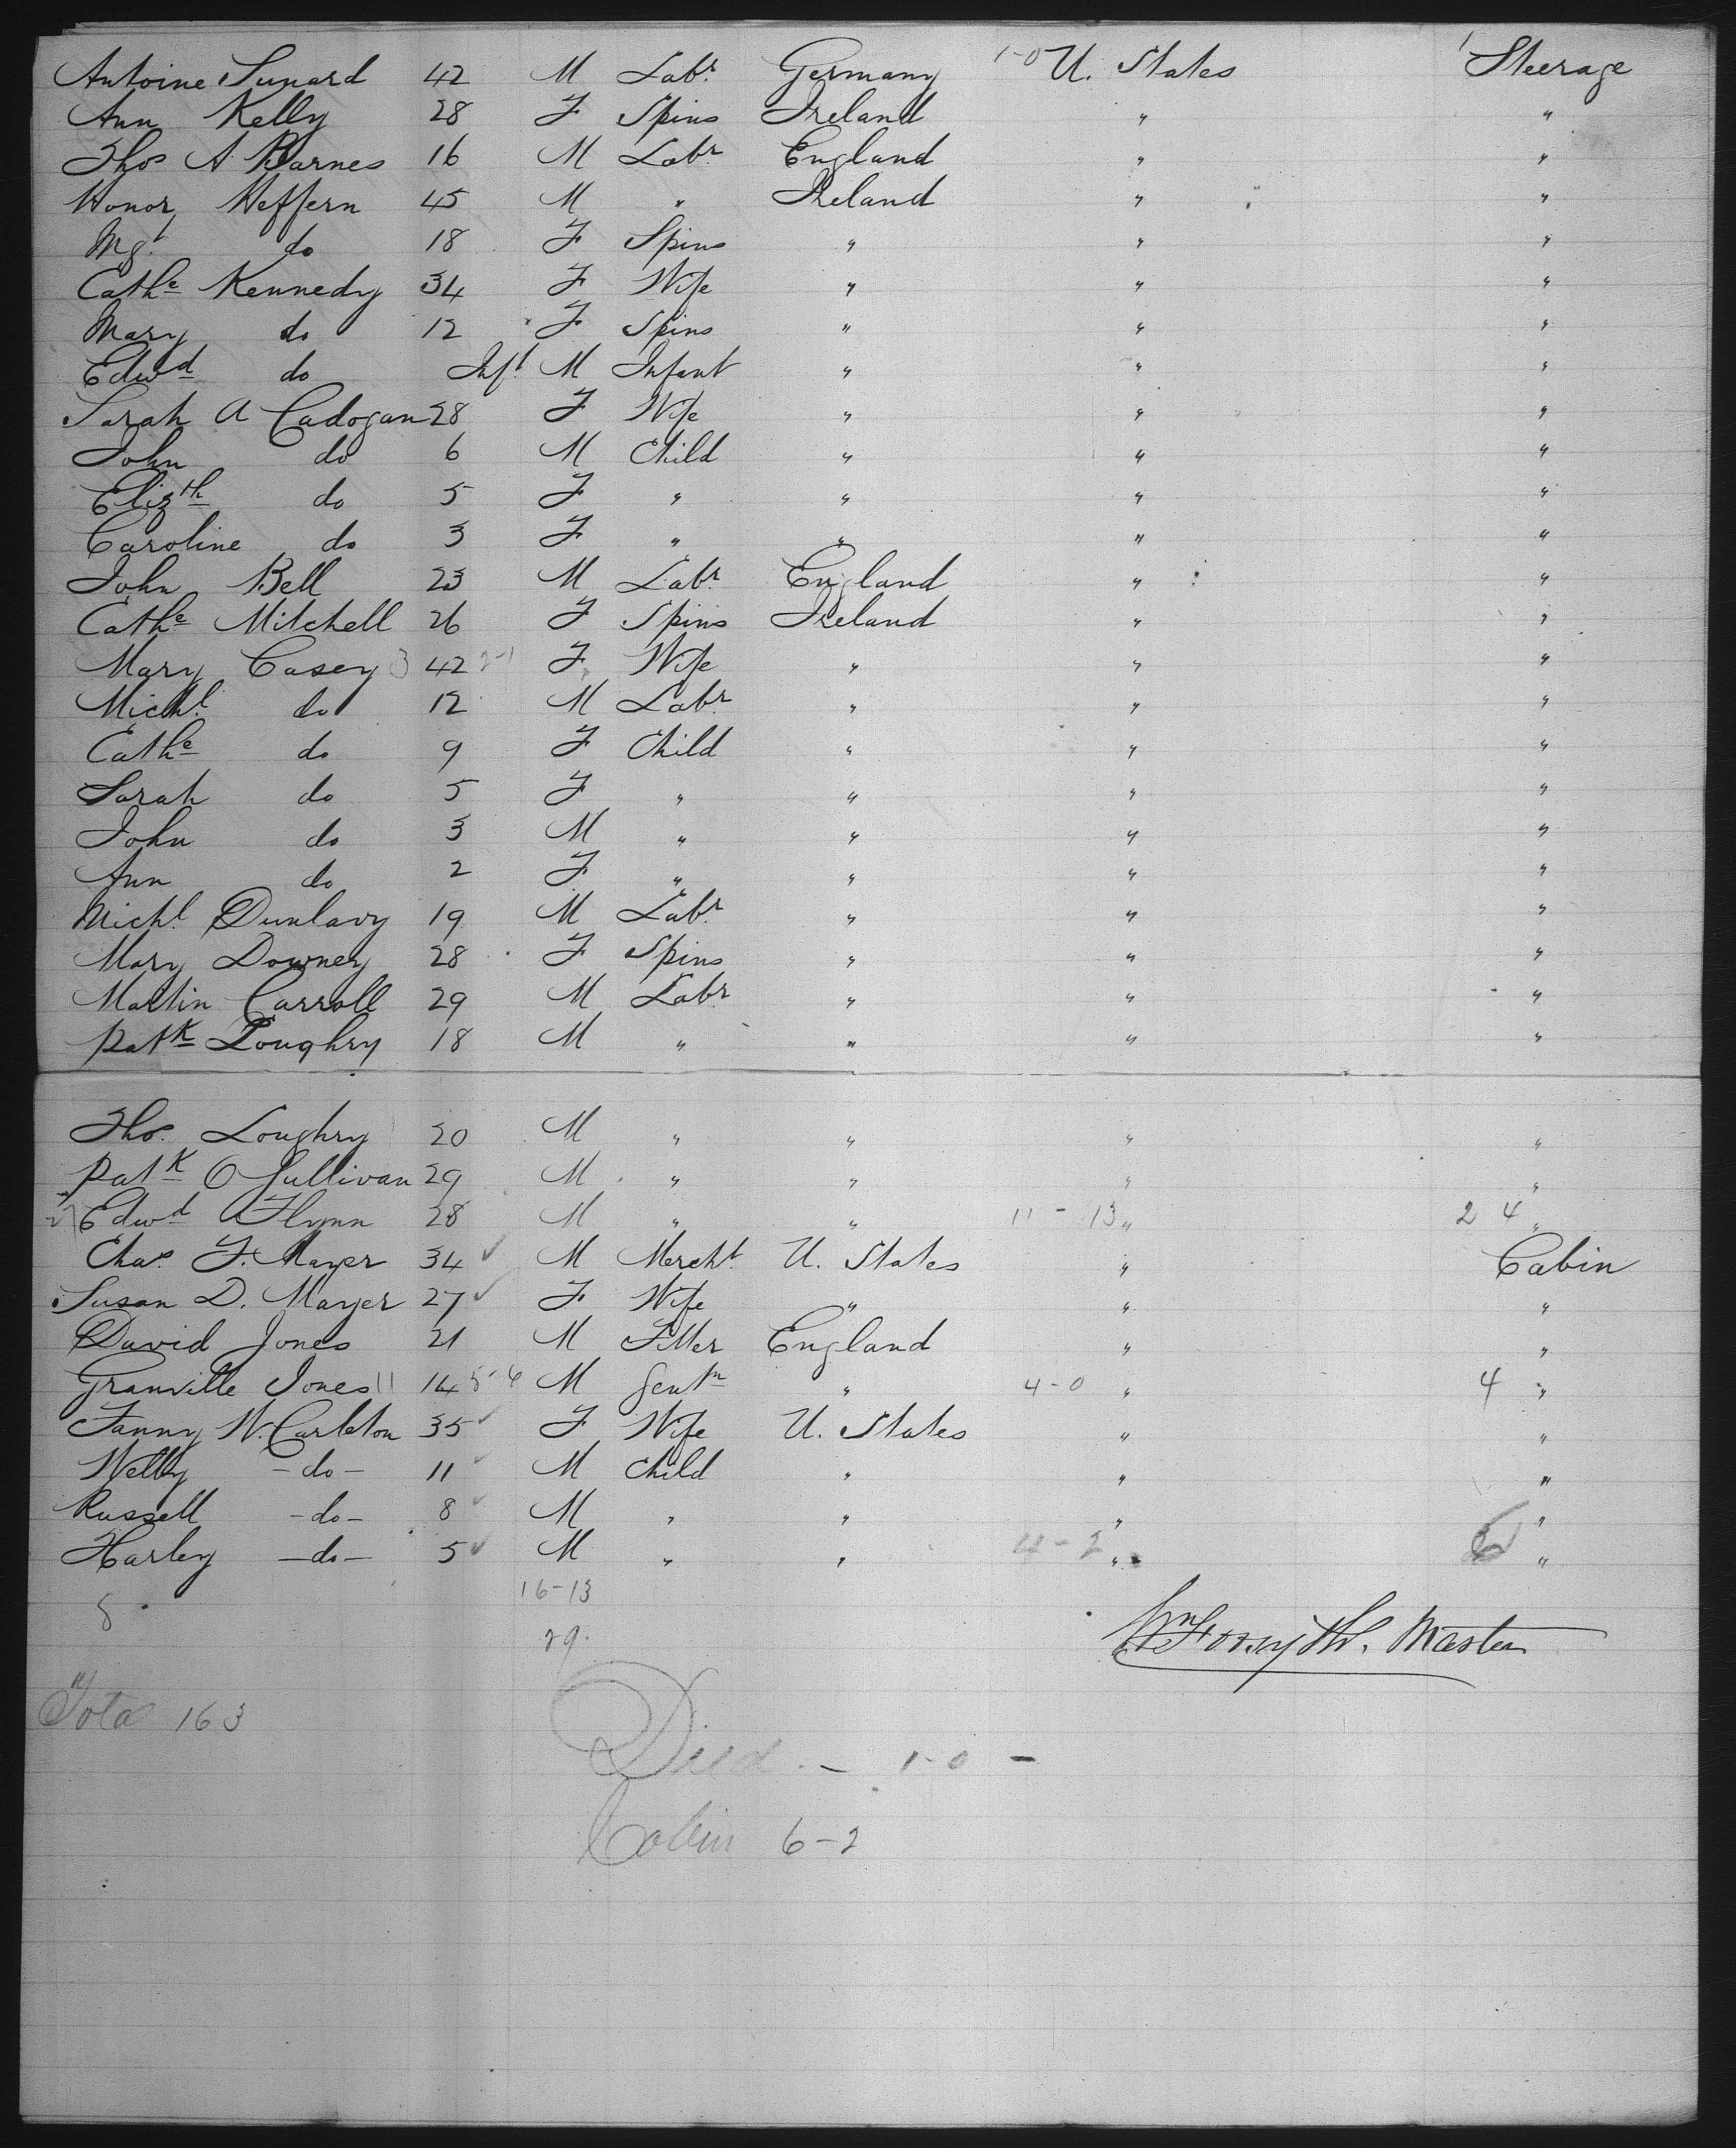 Antoine Sunard 42 M Labr Germany 1-0 U. States 1 Steerage
Ann Kelly 28 F Spins Ireland " "
Thos A Barnes 16 M Labr England " "
Honor Heffern 45 M " Ireland " "
Mgt do 18 F Spins " " "
Cathe Kennedy 34 F Wife " " "
Mary do 12 F Spins " " "
Edwd do Inft M Infant " " "
Sarah A Cadogan 28 F Wife " " "
John do 6 M Child " " "
Elizth do 5 F " " " "
Caroline do 3 F " " " "
John Bell 23 M Labr England " "
Cathe Mitchell 26 F Spins Ireland " "
Mary Casey 3 42 2-1 F Wife " " "
Michl do 12 M Labr " " "
Cathe do 9 F Child " " "
Sarah do 5 F " " " "
John do 3 M " " " "
Ann do 2 F " " " "
Michl Dunlavy 19 M Labr " " "
Mary Downey 28 F Spins " " "
Martin Carroll 29 M Labr " " "
Patk Loughry 18 M " " " "
Thos Loughry 20 M " " " "
Patk O Sullivan 29 M " " " "
27 Edwd Flynn 28 M " " 11 - 13 " 24 "
Chas F. Mayer 34 ✓ M Mercht U. States " Cabin
Susan D. Mayer 27 ✓ F Wife " " "
David Jones 21 M Fitter England " "
Granville Jones 11 14 5-6 M Gentn " 4-0 " 4 "
Fanny W. Carleton 35 ✓ F Wife U. States " "
Welby - do - 11 ✓ M Child " " "
Russell - do - 8 ✓ M " " " "
Harley - do - 5 ✓ M " " 4-2 " 6 "
16-13
8
29.
Wm Forsyth. Master
Total 163
Died. - 1-0 -
Cabin 6-2